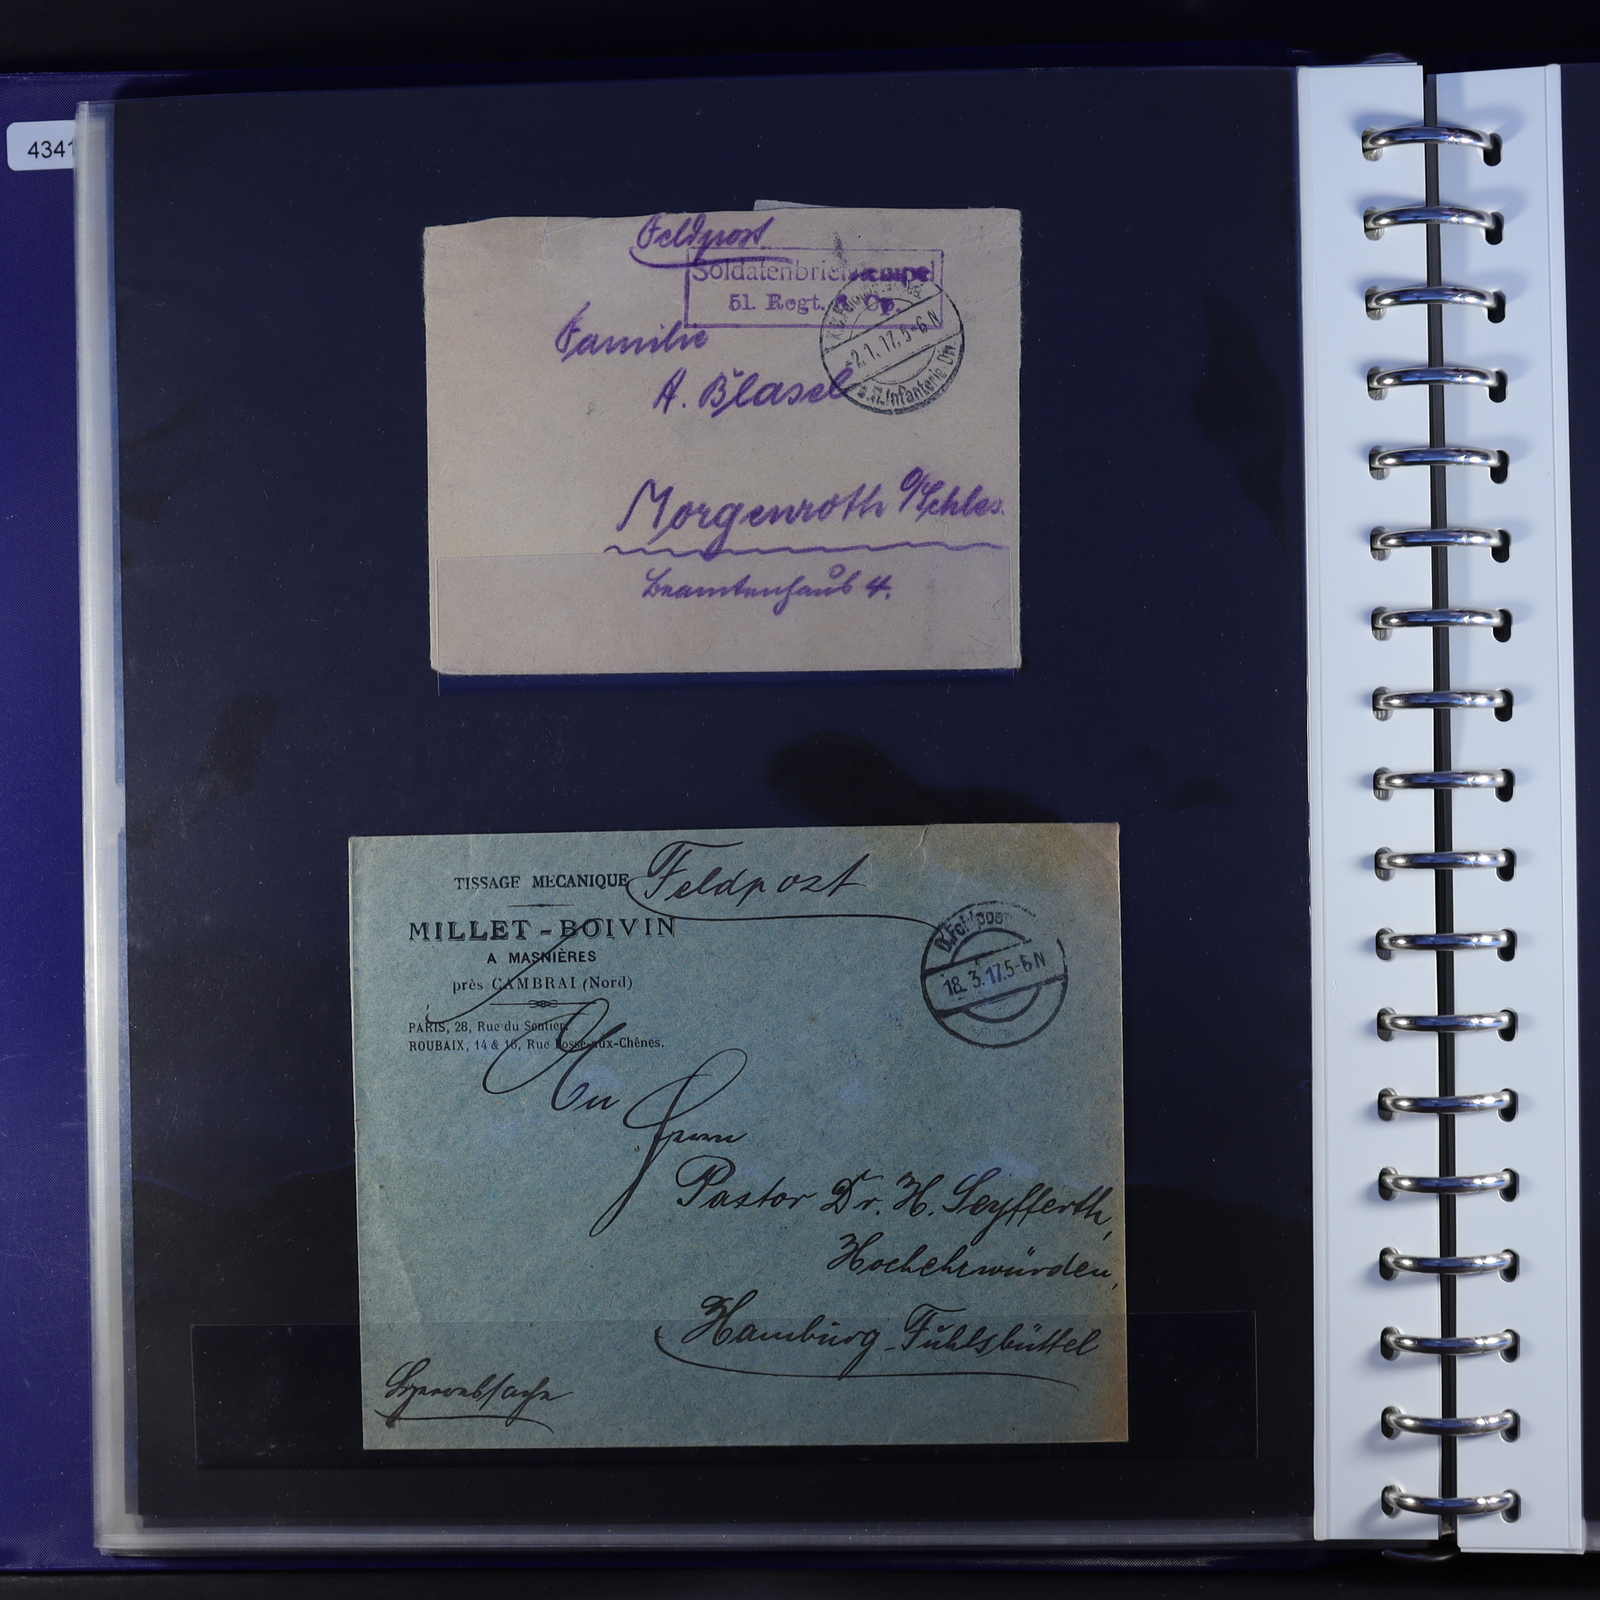 4341
Feldpost
Soldatenbriefstempel
51. Regt. Cp.
2.1.17.5-6N
11. Infanterie Div.
Familie
A. Blasel
Morgenroth O/Schles.
Beamtenhaus 4.
TISSAGE MECANIQUE
Feldpost
MILLET-BOIVIN
A MASNIÈRES
près CAMBRAI (Nord)
PARIS, 28, Rue du Sentier.
ROUBAIX, 14 & 16, Rue Fosse-aux-Chênes.
D. Feldpost
18.3.17.5-6N
An
Herrn
Pastor Dr. H. Seyfferth,
Hochehrwürden,
Hamburg-Fuhlsbüttel